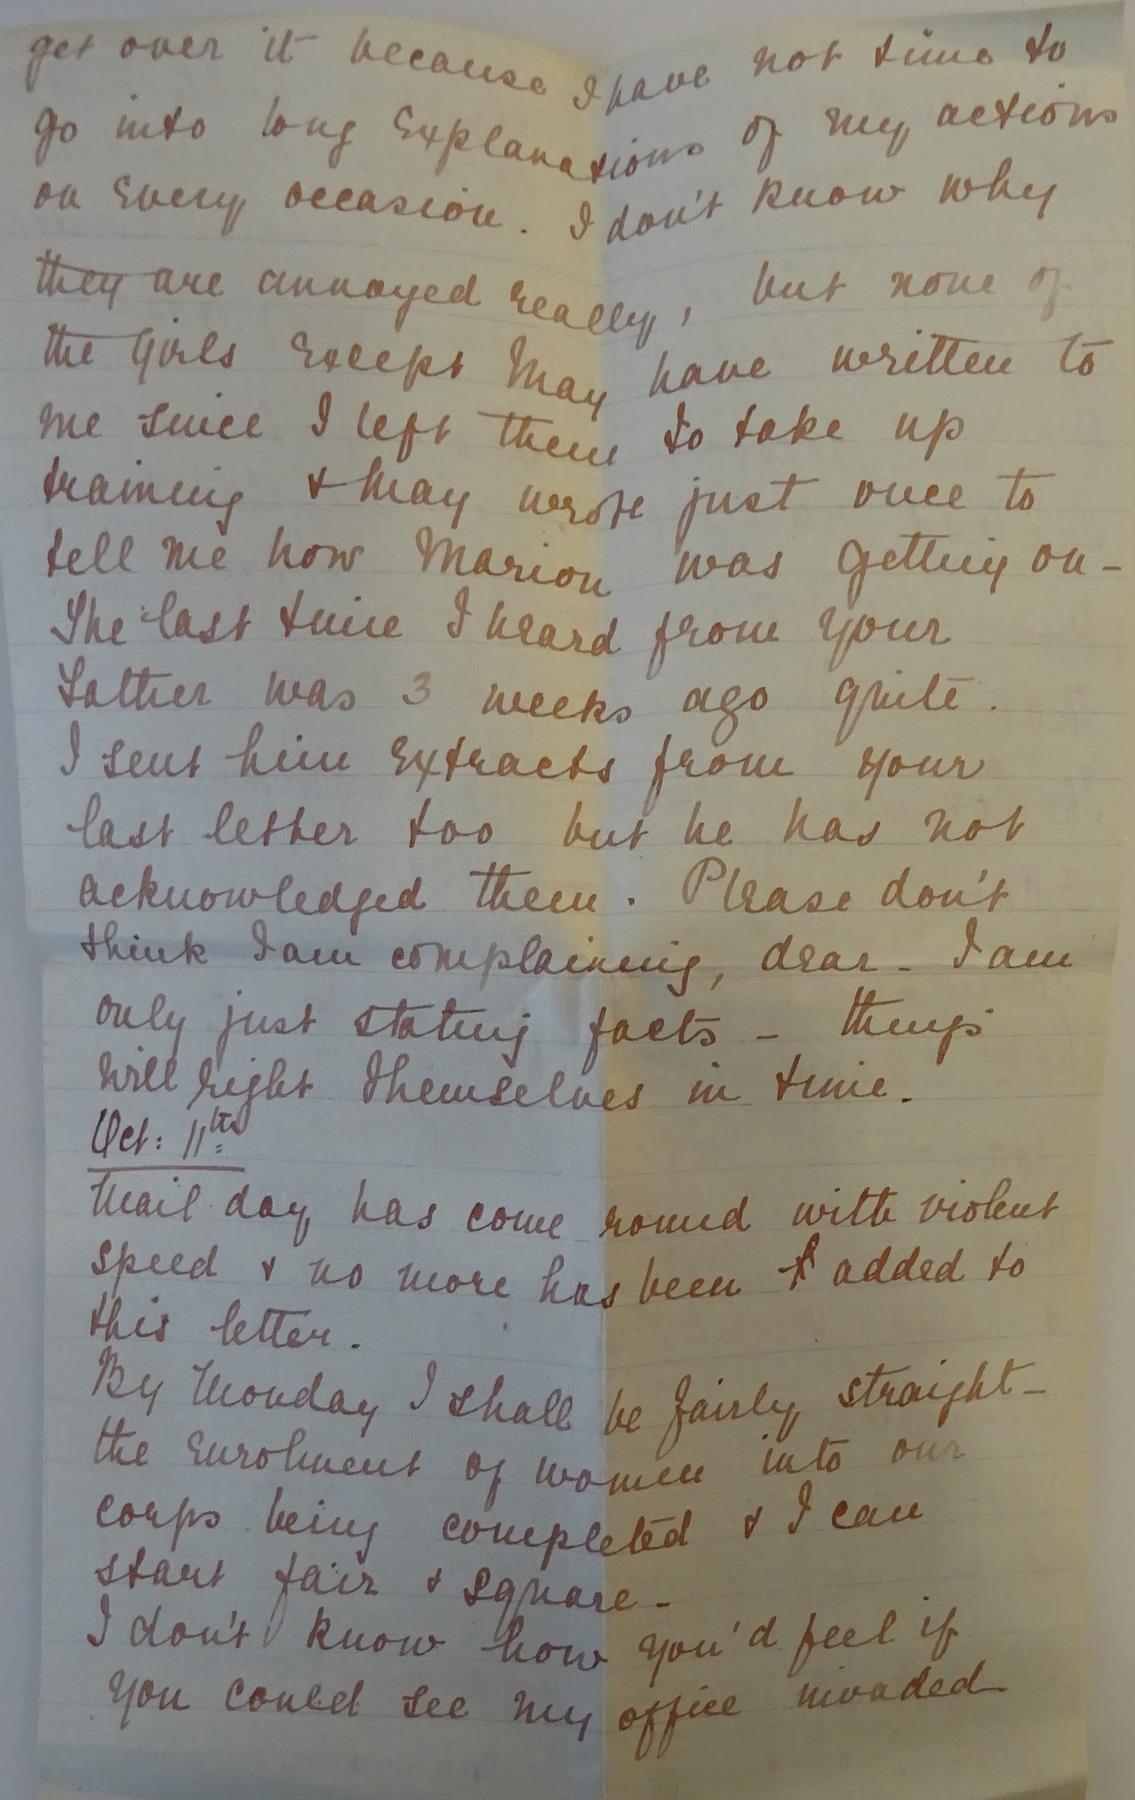 get over it because I have not time to
go into long Explanations of my actions
on Every occasion. I don't know why
they are annoyed really, but none of
the Girls Except May have written to
me since I left them to take up
training & May wrote just once to
tell me how Marion was getting on -
The last time I heard from your
Father was 3 weeks ago quite.
I sent him Extracts from your
last letter too but he has not
acknowledged them. Please don't
think I am complaining, dear - I am
only just stating facts - things
will right themselves in time.
Oct: 11th
Mail day has come round with violent
speed & no more has been added to
this letter.
By Monday I shall be fairly straight -
the Enrolment of women into our
corps being completed & I can
start fair & square -
I don't know how you'd feel if
you could see my office invaded